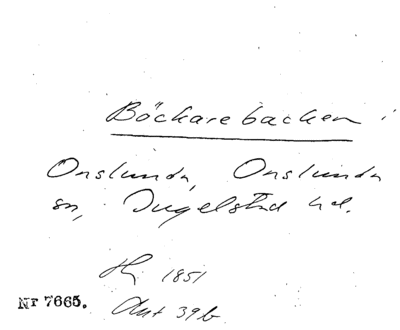 Böckarebacken i
Onslunda, Onslunda
sn, Ingelstad hd.
1851
Nr 7665. Ant 39b